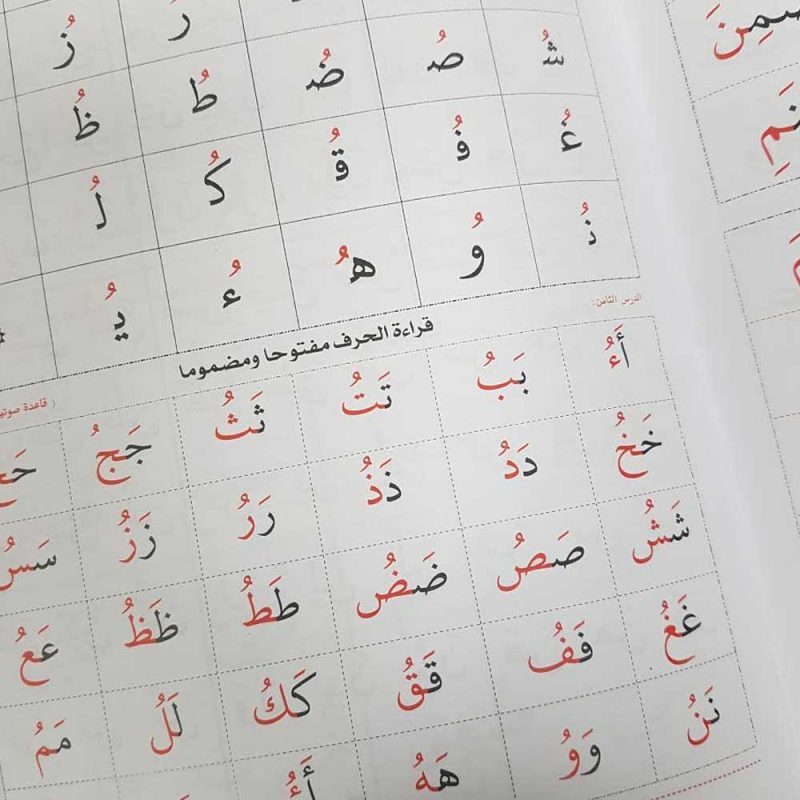 رُ زُ
شُ صُ ضُ طُ ظُ
غُ فُ قُ كُ لُ
نُ وُ هُ ءُ يُ
الدرس الثامن:
قراءة الحرف مفتوحا ومضموما
( قاعدة
أَءُ بَبُ تَتُ ثَثُ جَجُ
خَخُ دَدُ ذَذُ رَرُ زَزُ سَسُ
شَشُ صَصُ ضَضُ طَطُ ظَظُ عَعُ
غَغُ فَفُ قَقُ كَكُ لَلُ مَمُ
نَنُ وَوُ هَهُ أَءُ